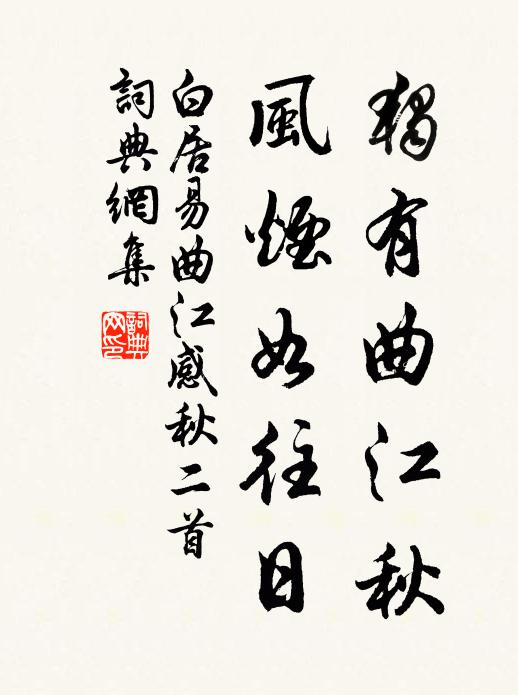 獨有曲江秋
風煙如往日
白居易曲江感秋二首
詞典網集
詞典
网印